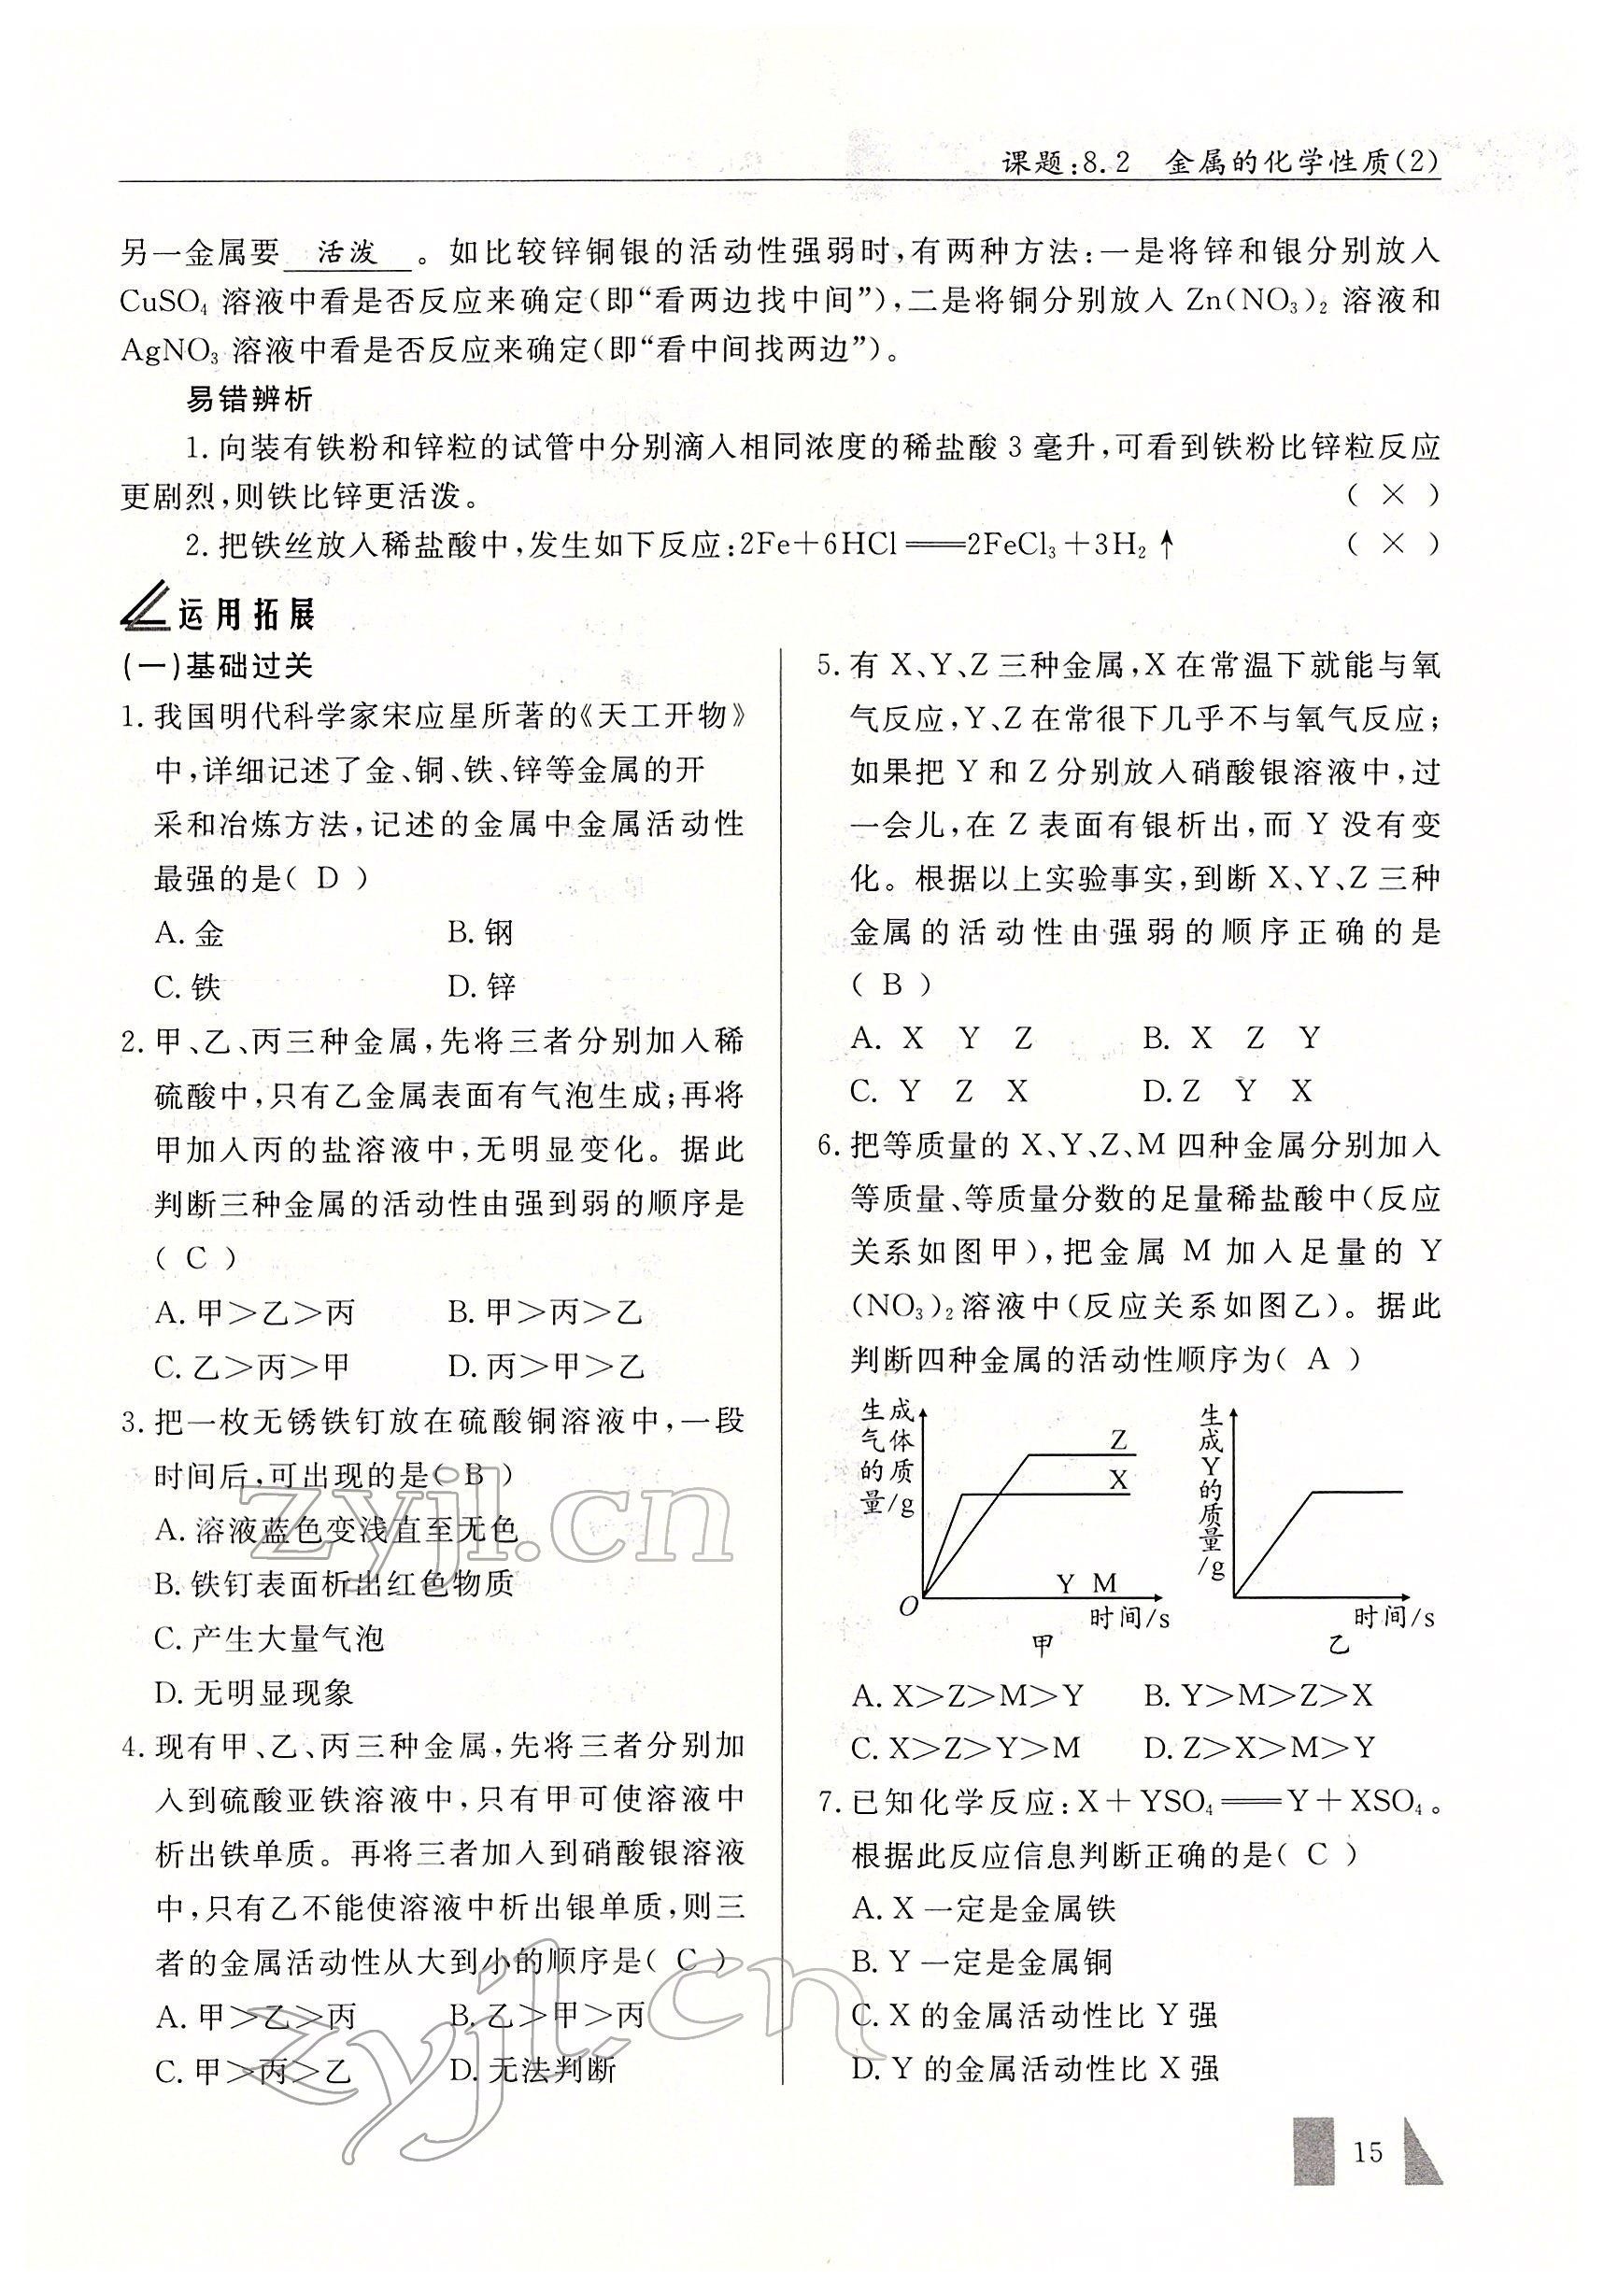 课题:8.2 金属的化学性质(2)
另一金属要 活泼 。如比较锌铜银的活动性强弱时,有两种方法:一是将锌和银分别放入
CuSO₄ 溶液中看是否反应来确定(即“看两边找中间”),二是将铜分别放入 Zn(NO₃)₂ 溶液和
AgNO₃ 溶液中看是否反应来确定(即“看中间找两边”)。
易错辨析
1. 向装有铁粉和锌粒的试管中分别滴入相同浓度的稀盐酸 3 毫升,可看到铁粉比锌粒反应
更剧烈,则铁比锌更活泼。 ( × )
2. 把铁丝放入稀盐酸中,发生如下反应:2Fe+6HCl══2FeCl₃+3H₂↑ ( × )
运用拓展
(一)基础过关
1. 我国明代科学家宋应星所著的《天工开物》
中,详细记述了金、铜、铁、锌等金属的开
采和冶炼方法,记述的金属中金属活动性
最强的是( D )
A. 金 B. 钢
C. 铁 D. 锌
2. 甲、乙、丙三种金属,先将三者分别加入稀
硫酸中,只有乙金属表面有气泡生成;再将
甲加入丙的盐溶液中,无明显变化。据此
判断三种金属的活动性由强到弱的顺序是
( C )
A. 甲>乙>丙 B. 甲>丙>乙
C. 乙>丙>甲 D. 丙>甲>乙
3. 把一枚无锈铁钉放在硫酸铜溶液中,一段
时间后,可出现的是( B )
A. 溶液蓝色变浅直至无色
B. 铁钉表面析出红色物质
C. 产生大量气泡
D. 无明显现象
4. 现有甲、乙、丙三种金属,先将三者分别加
入到硫酸亚铁溶液中,只有甲可使溶液中
析出铁单质。再将三者加入到硝酸银溶液
中,只有乙不能使溶液中析出银单质,则三
者的金属活动性从大到小的顺序是( C )
A. 甲>乙>丙 B. 乙>甲>丙
C. 甲>丙>乙 D. 无法判断
5. 有 X、Y、Z 三种金属,X 在常温下就能与氧
气反应,Y、Z 在常很下几乎不与氧气反应;
如果把 Y 和 Z 分别放入硝酸银溶液中,过
一会儿,在 Z 表面有银析出,而 Y 没有变
化。根据以上实验事实,到断 X、Y、Z 三种
金属的活动性由强弱的顺序正确的是
( B )
A. X Y Z B. X Z Y
C. Y Z X D. Z Y X
6. 把等质量的 X、Y、Z、M 四种金属分别加入
等质量、等质量分数的足量稀盐酸中(反应
关系如图甲),把金属 M 加入足量的 Y
(NO₃)₂ 溶液中(反应关系如图乙)。据此
判断四种金属的活动性顺序为( A )
生成
气体
的质
量/g
Z
X
Y M
O
时间/s
甲
生
成
Y
的
质
量
/g
时间/s
乙
A. X>Z>M>Y B. Y>M>Z>X
C. X>Z>Y>M D. Z>X>M>Y
7. 已知化学反应:X+YSO₄══Y+XSO₄。
根据此反应信息判断正确的是( C )
A. X 一定是金属铁
B. Y 一定是金属铜
C. X 的金属活动性比 Y 强
D. Y 的金属活动性比 X 强
15
zyjl.cn
zyjl.cn